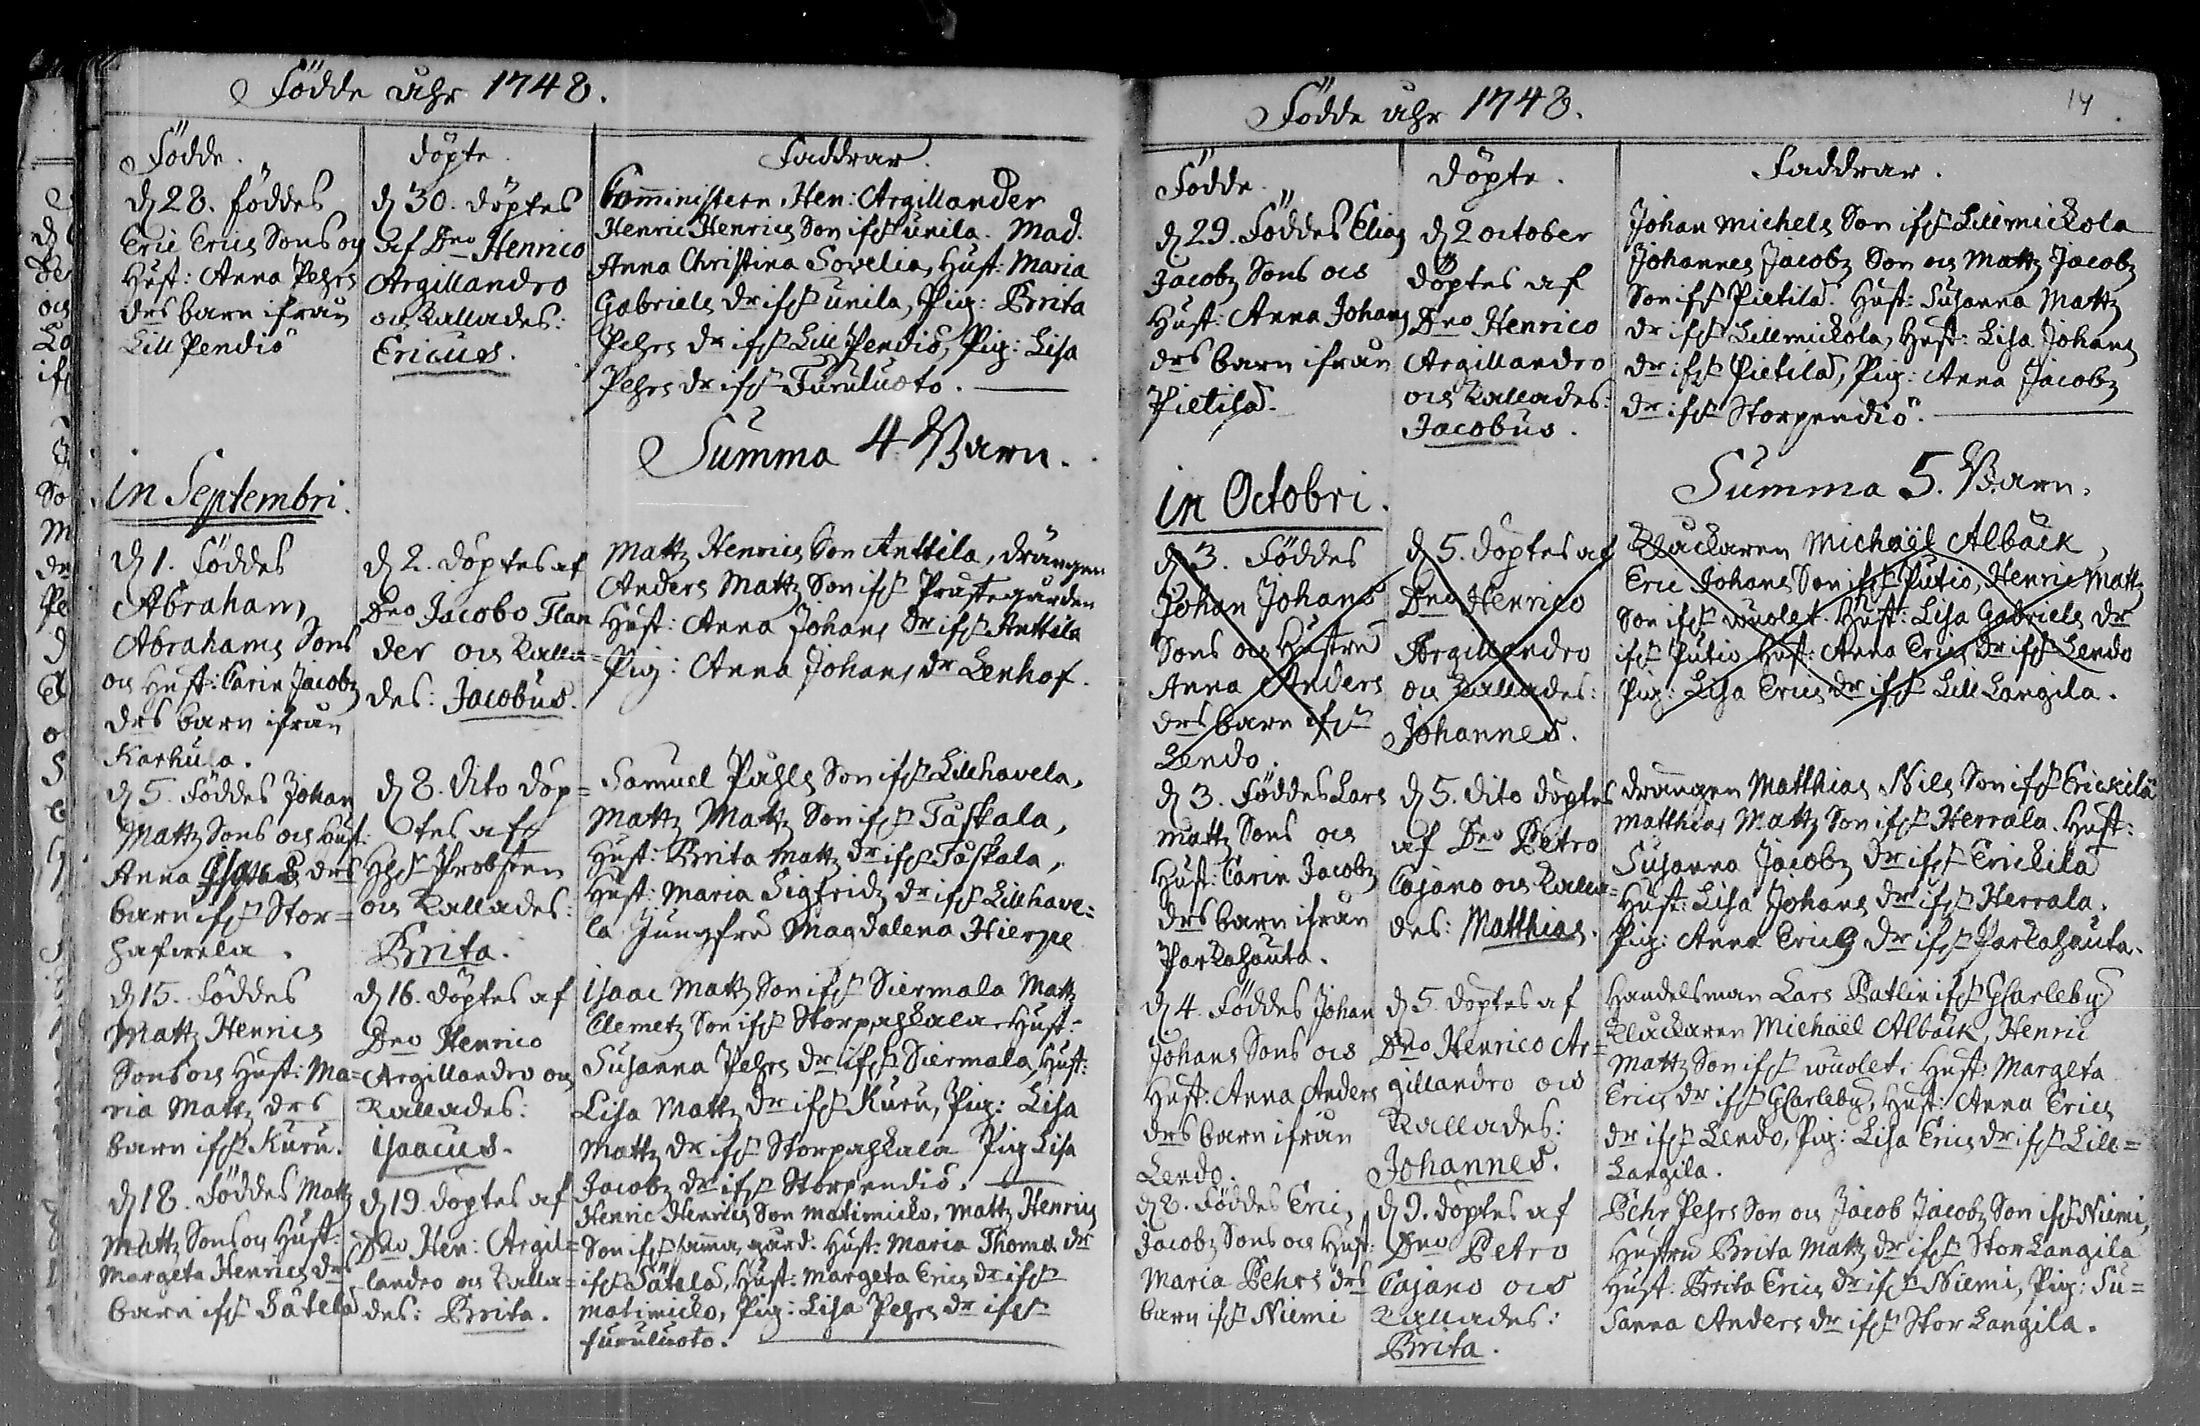 Födde åhr 1748.
Födde.
d 28. föddes
Eric Erics Sons och
Hust: Anna Pehrs
drs barn ifrån
Lill Pendiö
Döpte.
d 30. döptes
af Dno Henrico
Argillandro
och kallades:
Ericus.
Faddrar.
Comministern Hen: Argillander
Henric Henrics Son ifrån unila. Mad.
Anna Christina Sovelia, Hust: Maria
Gabriels dr ifrån unila, Pig: Brita
Pehrs dr ifrån Lill Pendiö, Pig: Lisa
Pehrs dr ifrån Furuluoto.
Summa 4. Barn.
in Septembri.
d 1. Föddes
Abraham
Abrahams Sons
och Hust: Carin Jacobz
drs barn ifrån
Karhula.
d 2. döptes af
Dno Jacobo Flan
der och kalla=
des: Jacobus.
Mattz Henrics Son Anttila, drängen
Anders Mattz Son ifrån Prästegården
Hust: Anna Johans dr ifrån Anttila
Pig: Anna Johans dr Lenhof.
d 5. Föddes Johan
Mattz Sons och Hust:
Anna drs
barn ifrån Stor=
hafvela.
d 8. dito döp=
tes af
Probsten
och kallades:
Brita.
Samuel Påhls Son ifrån Lillhavela,
Mattz Mattz Son ifrån Påskala,
Hust: Brita Mattz dr ifrån Påskala,
Hust: Maria Sigfridz dr ifrån Lillhave=
la Jungfru Magdalena Hierpe
d 15. Föddes
Mattz Henrics
Sons och Hust: Ma=
ria Mattz drs
barn ifrån Kuru.
d 16. döptes af
Dno Henrico
Argillandro och
kallades:
isaacus.
isaac Mattz Son ifrån Siermala Mattz
Clemetz Son ifrån Storpaskala Hust:
Susanna Pehrs dr ifrån Siermala, Hust:
Lisa Mattz dr ifrån Kuru, Pig: Lisa
Mattz dr ifrån Storpaskala Pig Lisa
Jacobz dr ifrån Storpendiö.
d 18. Föddes Mattz
Mattz Sons och Hust:
Margeta Henrics drs
barn ifrån Sätelä
d 19. döptes af
Dno Hen: Argil=
landro och kalla=
des: Brita.
Henric Henrics Son matimicko, Mattz Henrics
Son ifrån samma gård. Hust: Maria Thomas dr
ifrån Sätelä, Hust: Margeta Erics dr ifrån
matimicko, Pig: Lisa Pehrs dr ifrån
furuluoto.
Födde åhr 1748.
14
Födde.
d 29. Föddes Elias
Jacobz Sons och
Hust: Anna Johans
drs barn ifrån
Pietilä.
Döpte.
d 2 october
döptes af
Dno Henrico
Argillandro
och kallades:
Jacobus.
Faddrar.
Johan Michels Son ifrån Lillmickola
Johannes Jacobz Son och Mattz Jacobz
Son ifrån Pietilä. Hust: Susanna Mattz
dr ifrån Lillmickola, Hust: Lisa Johans
dr ifrån Pietilä, Pig: Anna Jacobz
dr ifrån Storpendiö.
Summa 5. Barn.
in Octobri.
d 3. Föddes
Johan Johans
Sons och Hustru
Anna Anders
drs barn ifrån
Lendo.
d 5. döptes af
Dno Henrico
Argillandro
och kallades:
Johannes.
Klackaren Michaël Albäck,
Eric Johans Son ifrån Putio, Henric Mattz
Son ifrån wuolet. Hust: Lisa Gabriels dr
ifrån Putio Hust: Anna Erics dr ifrån Lendo
Pig: Lisa Erics dr ifrån Lill Langila.
d 3. Föddes Lars
Mattz Sons och
Hust: Carin Jacobz
drs barn ifrån
Parkahauta.
d 5. dito döptes
af Dno Petro
Cajano och kalla=
des: Matthias.
drängen Matthias Nils Son ifrån Erickilä
Matthias Mattz Son ifrån Herrala. Hust:
Susanna Jacobz dr ifrån Erickilä
Hust: Lisa Johans dr ifrån Herrala.
Pig: Anna Erics dr ifrån Parkahauta.
d 4. Föddes Johan
Johans Sons och
Hust: Anna Anders
drs barn ifrån
Lendo.
d 5. döptes af
Dno Henrico Ar=
gillandro och
kallades:
Johannes.
Handelsman Lars Patlin ifrån GCarleby
Klackaren Michaël Albäck, Henric
Mattz Son ifrån wuolet. Hust: Margeta
Erics dr ifrån GCarleby, Hust: Anna Erics
dr ifrån Lendo, Pig: Lisa Erics dr ifrån Lill=
Langila.
d 8. Föddes Eric
Jacobz Sons och Hust:
Maria Pehrs drs
barn ifrån Niemi
d 9. döptes af
Dno Petro
Cajano och
kallades:
Brita.
Pehr Pehrs Son och Jacob Jacobz Son ifrån Niemi,
Hustru Brita Mattz dr ifrån Stor Langila
Hust: Brita Erics dr ifrån Niemi, Pig: Su=
sanna Anders dr ifrån Stor Langila.